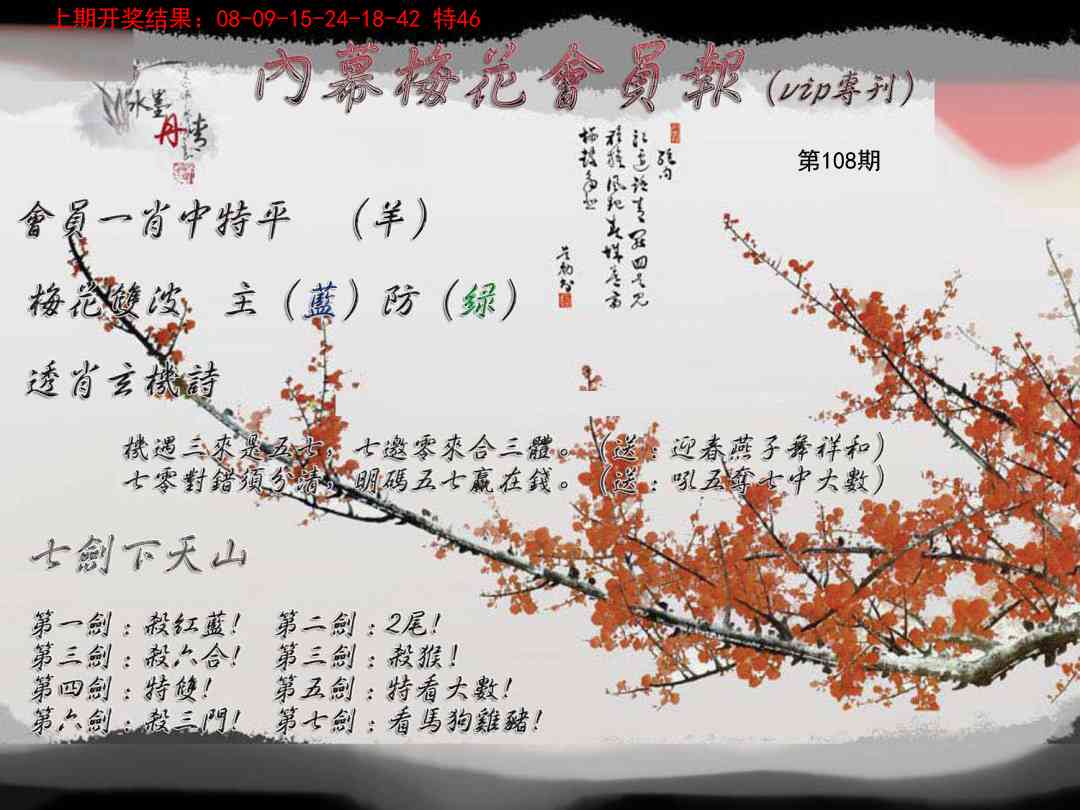 上期开奖结果：08-09-15-24-18-42 特46
內幕梅花會員報（vip專刊）
水墨丹青
第108期
會員一肖中特平 （羊）
梅花雙波 主（藍）防（绿）
透肖玄機詩
機遇三來是五七，七邀零來合三體。（送：迎春燕子舞祥和）
七零對錯須分清，明碼五七贏在錢。（送：吼五奪七中大數）
七劍下天山
第一劍：殺紅藍！ 第二劍：2尾！
第三劍：殺六合！ 第三劍：殺猴！
第四劍：特雙！ 第五劍：特看大數！
第六劍：殺三門！ 第七劍：看馬狗雞豬！